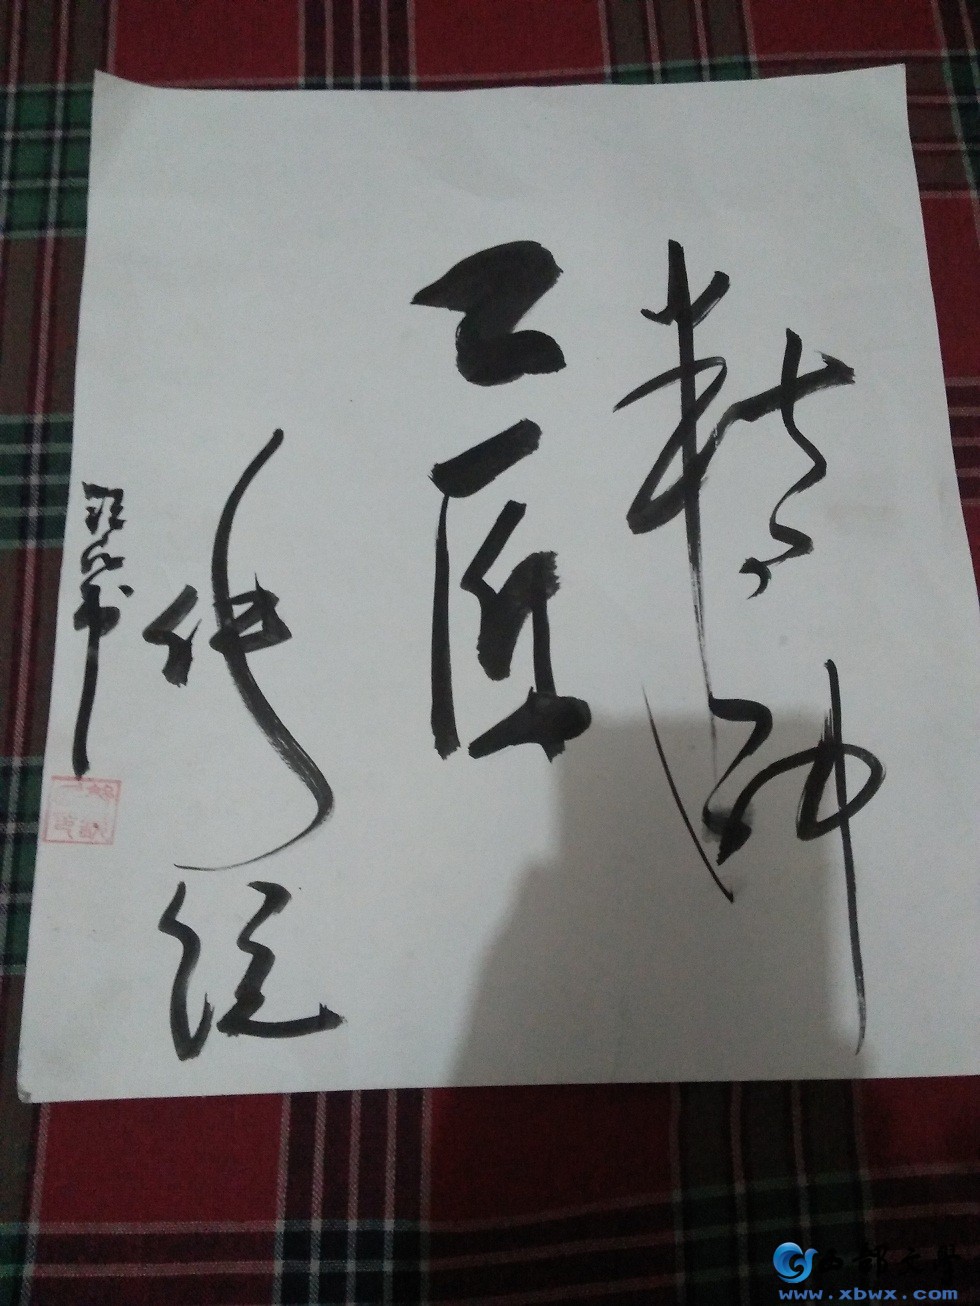 精神
工匠
传统
书
西部文学
www.xbwx.com